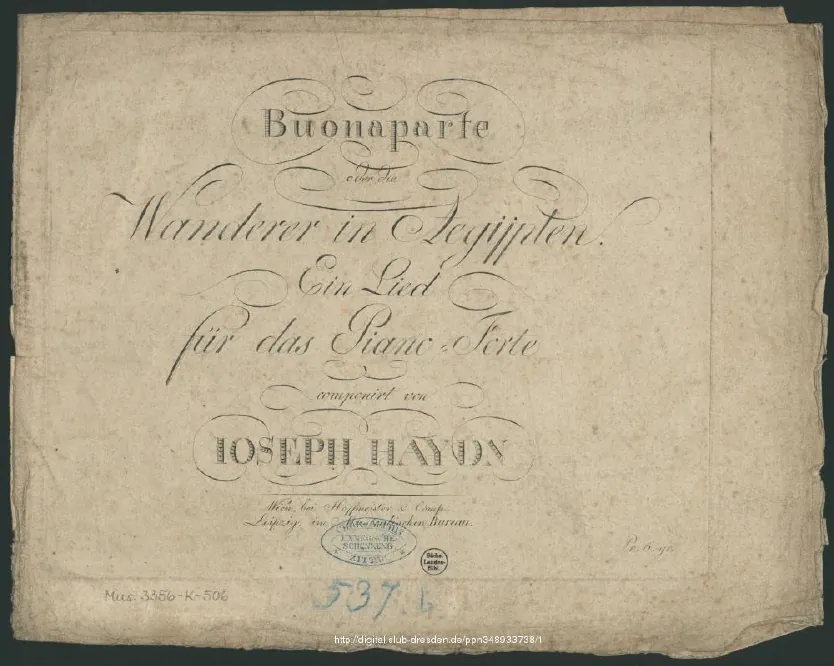 Buonaparte
oder die
Wanderer in Aegÿpten.
Ein Lied
für das Piano-Forte
componirt von
IOSEPH HAYDN
Wien, bei Hoffmeister & Comp.
Leipzig im Musikalischen Bureau.
EXNERSCHE
SCHENKUNG
ZITTAU
Sächs.
Landes-
Bibl.
Pr. 6 gr.
Mus. 3356-K-506
537. b
http://digital.slub-dresden.de/ppn348933738/1